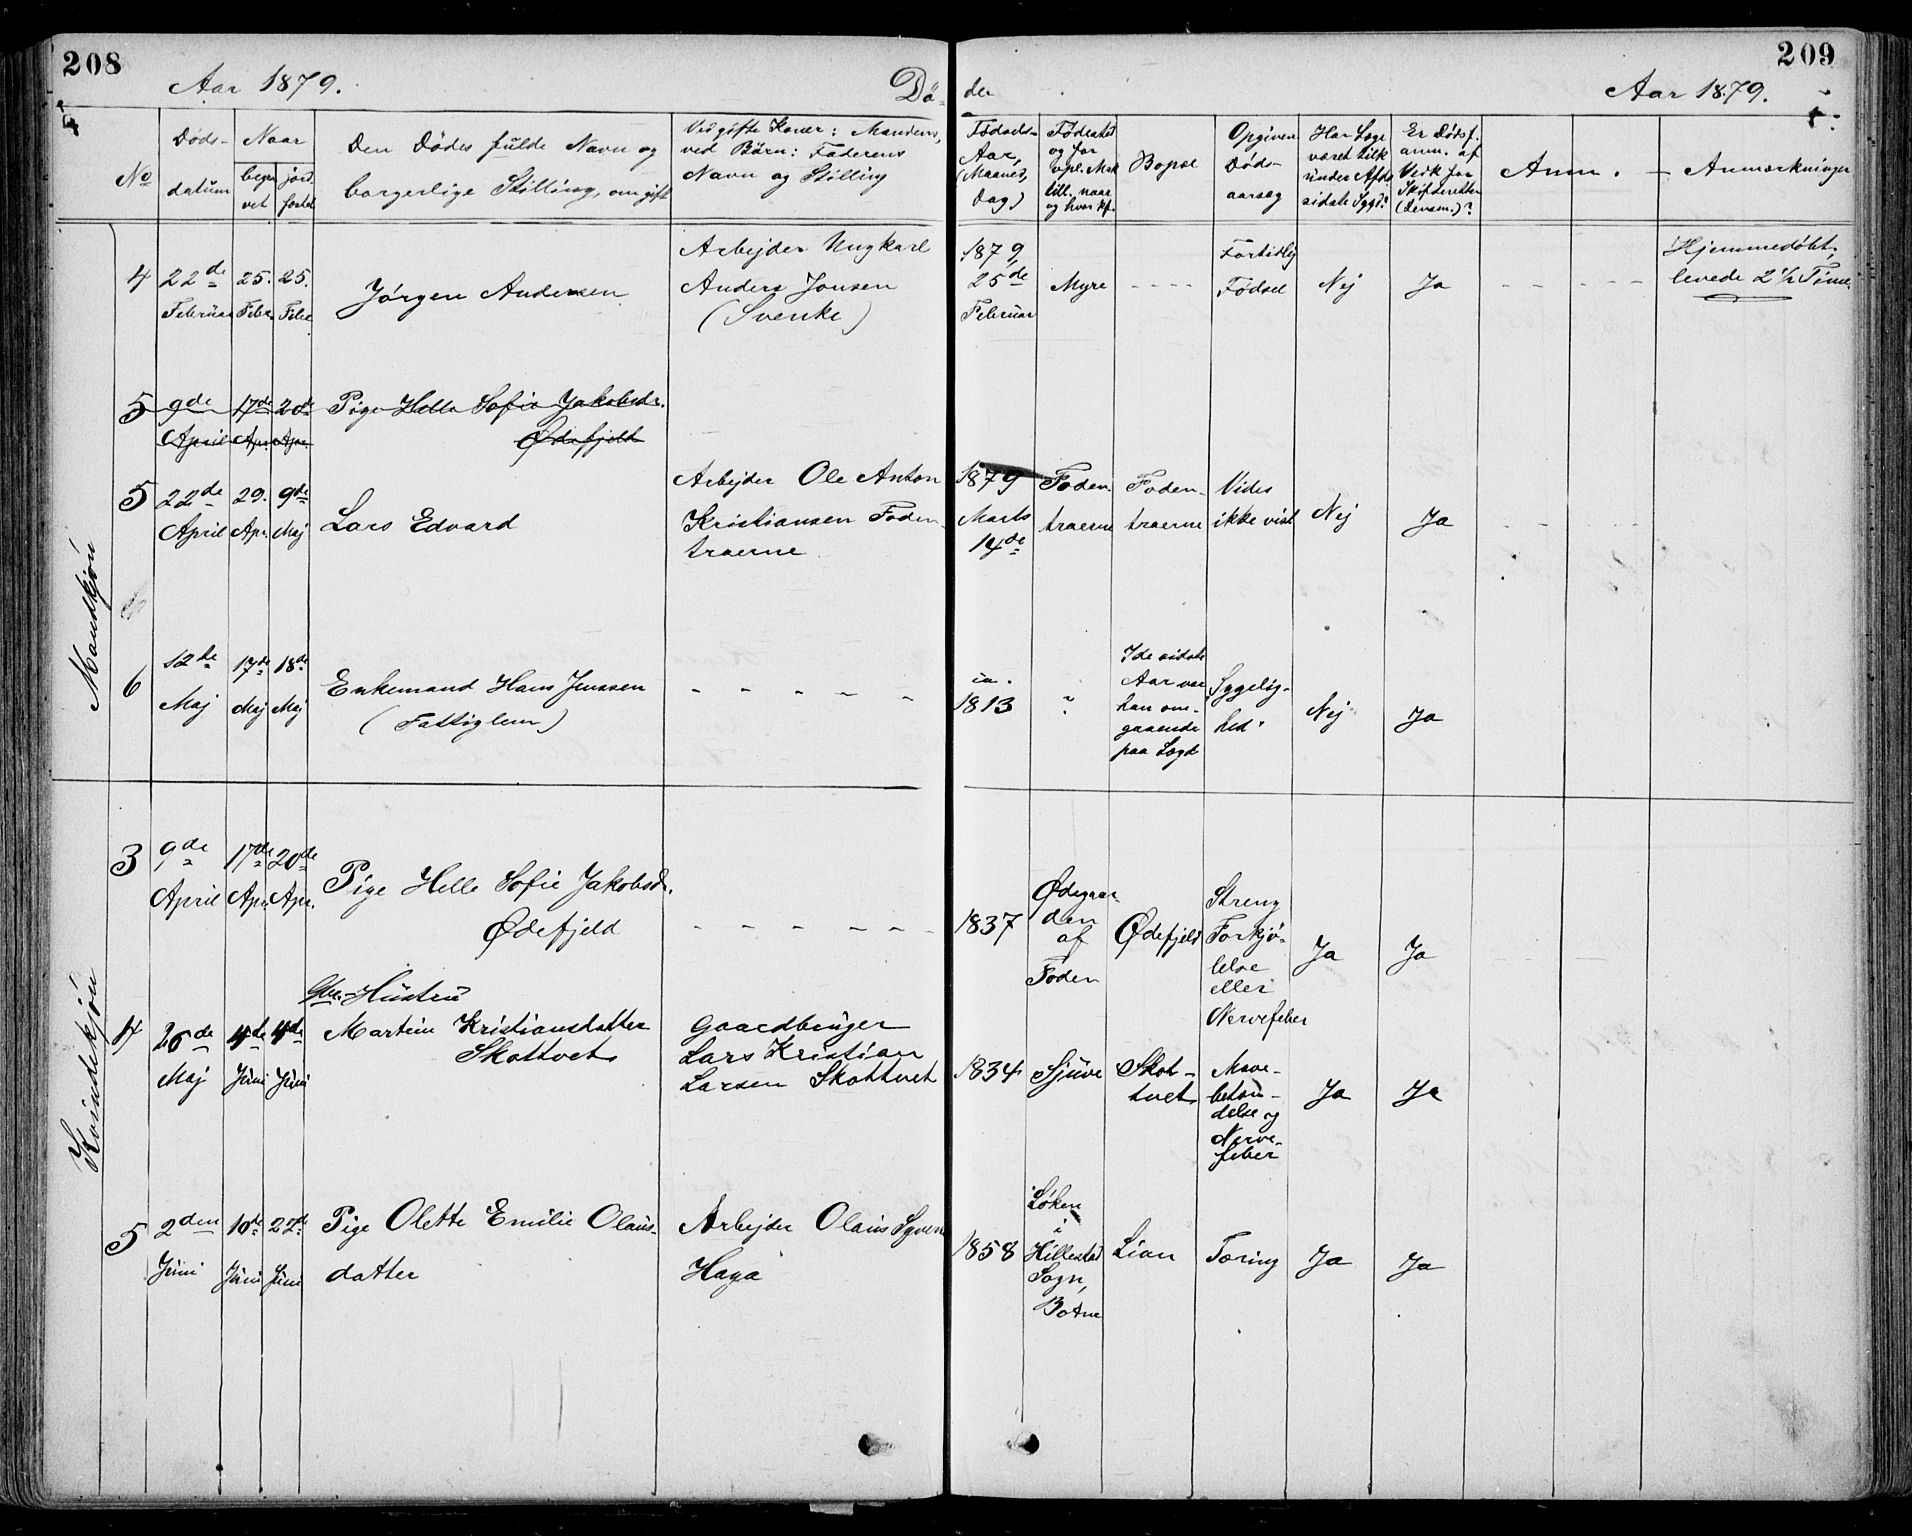 208
209
Aar 1879.
Dø-
de
Aar 1879.
No
Døds-
datum
Naar
begra
vet
jord
fæstet
Den Dødes fulde Navn og
borgerlige Stilling, om gift
Ved gifte Koner: Mandens,
ved Børn: Faderens
Navn og Stilling
Fødsels-
Aar,
(Maaned,
Dag)
Fødested
og for
till. naar
og hvor kf.
Bopæl
Opgiven
Døds-
aarsag
Har Læge
været tilk
under Afdø
sidste Sygd?
Er Dødsf.
anm. af
Vedk for
Skifteretten
(Lensm.)?
Anm.
Anmærkninger
Mandkjøn
4
22de
Februar
25.
Febr.
25.
Febr.
Jørgen Andersen
Arbejder Ungkarl
Anders Jonsen
(Svenke)
1879,
25de
Februar
Myre
- - - -
Fortidlig
Fødsel
Nej
Ja
- - - - -
Hjemmedøbt,
levede 2½ Time
5
9de
April
17de
Apr.
20de
Apr.
Pige Helle Sofie Jakobsdr.
Ødefjeld
5
22de
April
29.
Apr.
9de
Maj
Lars Edvard
Arbejder Ole Anton
Kristiansen Foden-
traerne
1879
Marts
14de
Foden-
traerne
Foden-
traerne
Vides
ikke vist
Nej
Ja
- - -
6
12te
Maj
17de
Maj
18de
Maj
Enkemand Hans Jenssen
(Fattiglem)
- - - - -
ca.
1813
?
I de sidste
Aar var
han om-
gaaende
paa Lægd
Sygelig-
hed
Nej
Ja
Kvindekjøn
3
9de
April
17de
Apr.
20de
Apr.
Pige Helle Sofie Jakobsdr.
Ødefjeld
- - - - - -
1837
Ødegaar-
den
af
Foden
Ødefjeld
Streng
Forkjø-
lelse
eller
Nervefeber
Ja
Ja
4
26de
Maj
4de
Juni
4de
Juni
Gbr.-Hustru
Martine Kristiansdatter
Skottvet
Gaardbruger
Lars Kristian
Larsen Skottvet
1834
Sjuve
Skot-
tvet
Mave-
betæn-
delse og
Nerve-
feber
Ja
Ja
5
2den
Juni
10de
Juni
22de
Juni
Pige Olette Emilie Olaus-
datter
Arbejder Olaus Syvers
Haga
1858
Løken
i
Hillestad
Sogn,
Botne
Lian
Tæring
Ja
Ja